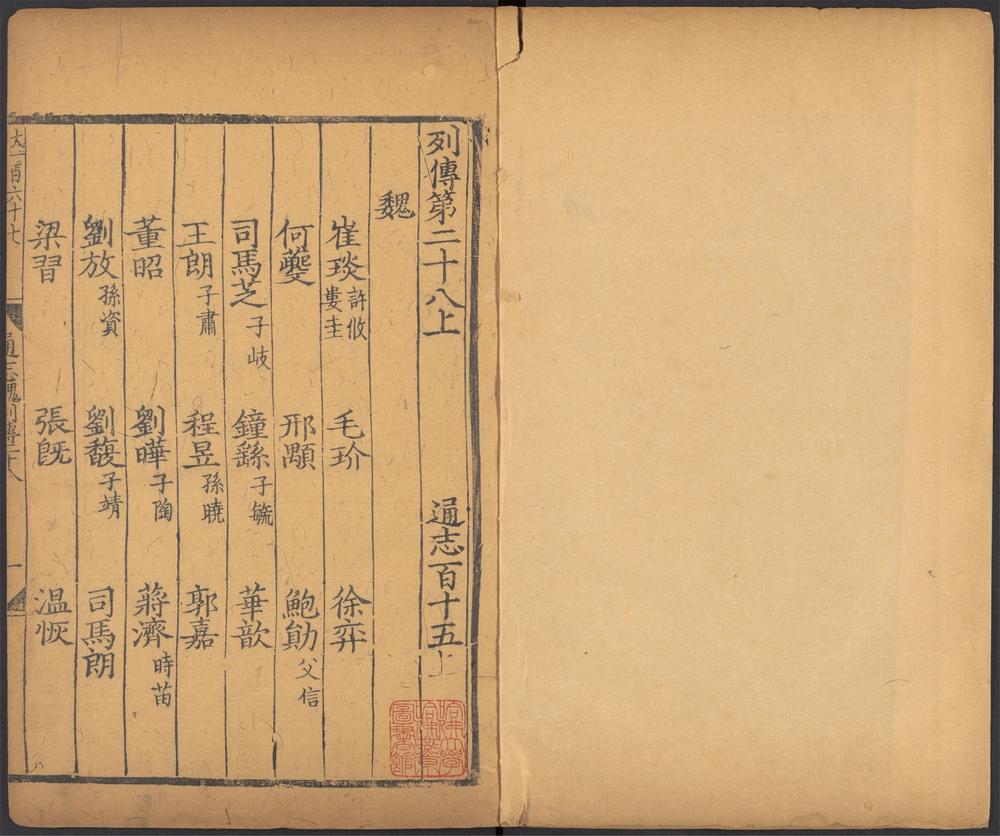 列傳第二十八上 通志百十五上
魏
崔琰 許攸 婁圭 毛玠 徐弈
何夔 邢顒 鮑勛 父信
司馬芝 子岐 鐘繇 子毓 華歆
王朗 子肅 程昱 孫曉 郭嘉
董昭 劉曄 子陶 蔣濟 時苗
劉放 孫資 劉馥 子靖 司馬朗
梁習 張旣 温恢
通志魏列傳二十八 一
哈佛大學哈佛燕京圖書館